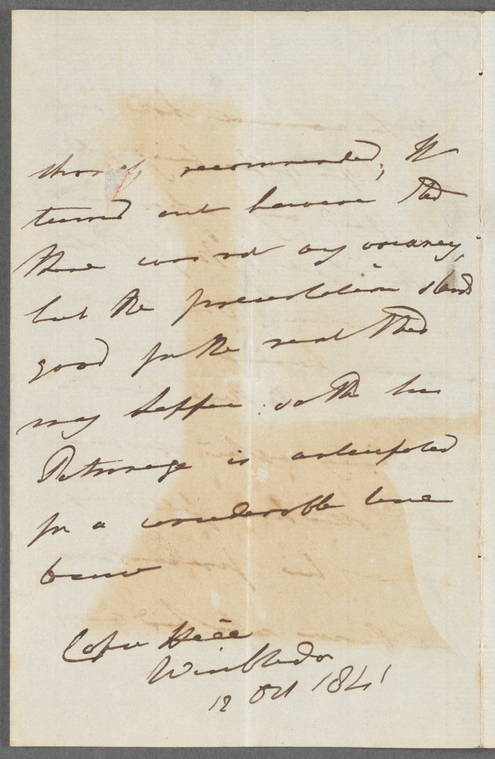 recommended; It
turned out however that
there was not any vacancy,
but the presentation stands
good for the next that
may happen so that his
Patronage is anticipated
for a considerable time
to come
Copse Hill
Wimbledon
12 Oct 1841